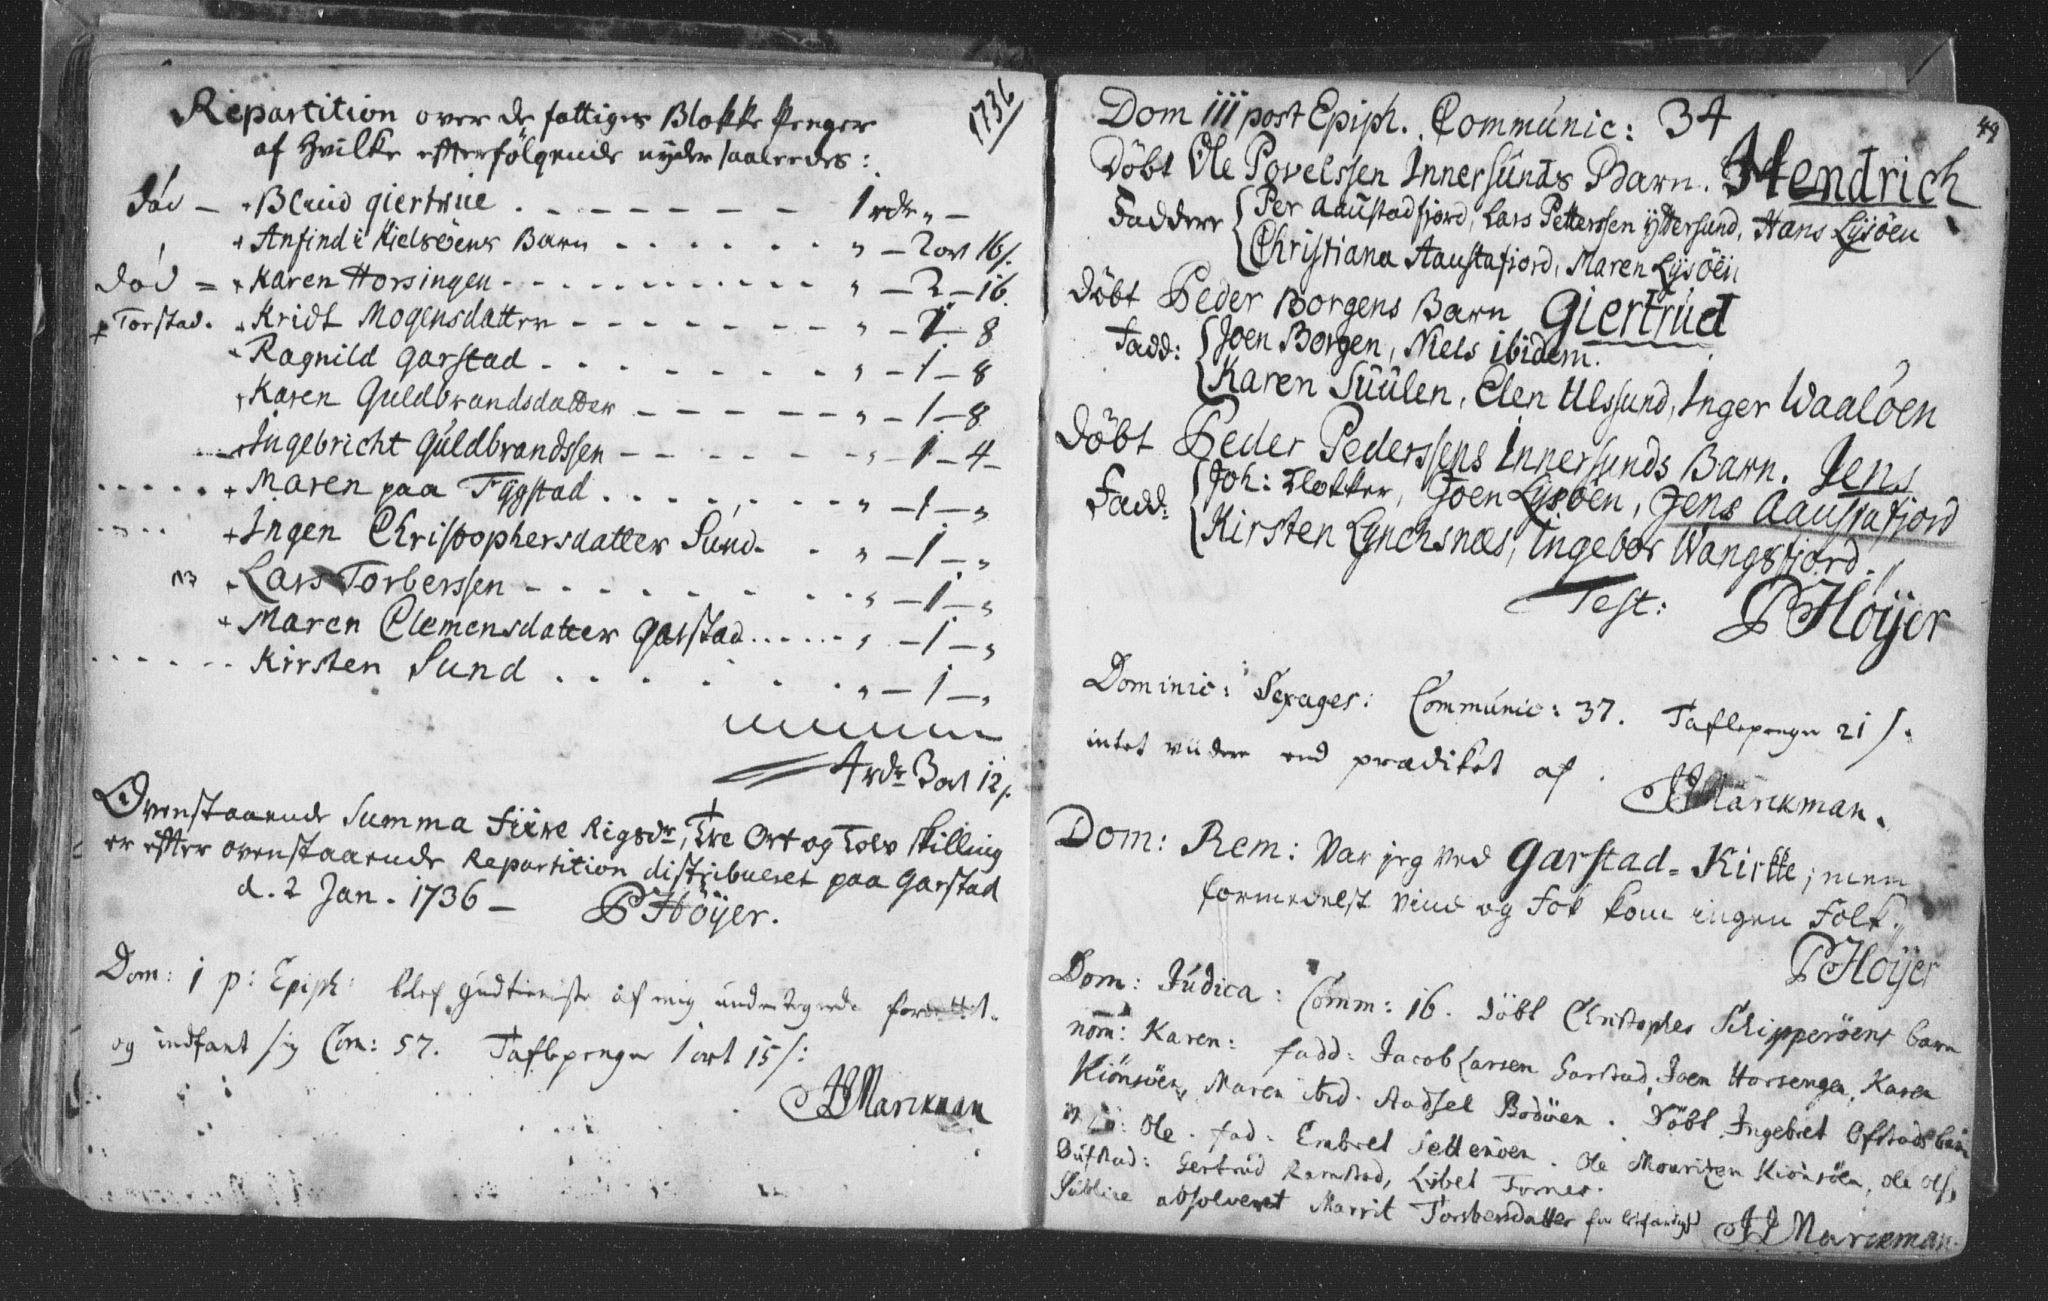 1736
Repartition over de fattiges Blokke Penger
af Hvilke efterfölgende nyder saaledes:
död — + Blind giertrüe . — — — — 1 rdr „ —
+ Anfind i Kielsöens Barn . . . . . . „ — 2 ort 16 s.
död = + Karen Horsingen . . . . . . . . „ — 2 — 16.
Torstad. + Kridt Mogensdatter — — — — „ — 1 — 8
+ Ragnild Garstad . . . . . . . „ — 1 — 8
+ Karen Guldbrandsdatter — — — — „ — 1 — 8
+ Ingebricht Guldbrandssen — — — — „ — 1 — 4 —
. . . . . + Maren paa Tÿgstad . . . . . . „ — 1 — „
+ Ingen Christophersdatter Sund . . . „ — 1 — „
+ Lars Torberssen — — — . . „ — 1 — „
+ Maren Clemensdatter Garstad . . . . . „ — 1 — „
. . . . . . Kirsten Sund . . . . . . „ — 1 — „
4 rdr 3 ort 12 s.
Ovenstaaende Summa Fiire Rigsdr, Tre Ort og Tolv skilling
er efter ovenstaaende Repartition distribueret paa Garstad
d. 2 Jan. 1736 — P Höÿer.
Dom: 1 p: Epiph: blef gudtieniste af mig undertegnede forrettet.
og indfant sig Com: 57. Taflepenger 1 ort 15 s:
JJMarckman
49
Dom III post Epiph. Communic: 34
Döbt Ole Povelssen Innersünds Barn. Hendrich
Faddere Per Aaustadfjord, Lars Petterssen Yttersund, Hans Lÿsöen
Christiana Aaustafjord, Maren Lÿsöen
Döbt Peder Borgens Barn Giertrud
Fadd: Joen Borgen, Niels ibidem.
Karen Süülen, Elen Ulssund, Inger Waalöen
Döbt Peder Pederssens Innersunds Barn. Jens
Fadd: Joh: Klokker, Joen Lÿsöen, Jens Aaustafjord
Kirsten Lynchsnæs, Ingebor Wangsfjord.
Test: P Höÿer
Dominic: Sexages: Communic: 37. Taflepenger 21 s.
intet viidere end prædiket af.
JJMarckman.
Dom: Rem: Var jeg ved Garstad-Kirkke, men
formedelst Vind og Fok kom ingen Folk.
P Höÿer
Dom: Judica: Comm: 16. Döbt Christopher Schipperöens barn
nom: Karen: fadd: Jacob Larsen Garstad, Joen Horsengen, Karen
Kiönsöen, Maren ibid. Aadsel Bodöen. Döbt Ingebret Ofstads barn
Ole. fad: Embret Settenöen. Ole Mouritzen Kiönsöen, Ole Ols.
Oufstad: Gertrud Ramstad, Lisbet Fornes.
Publice absolveret Marrit Torsbersdatter for
JJMarckman